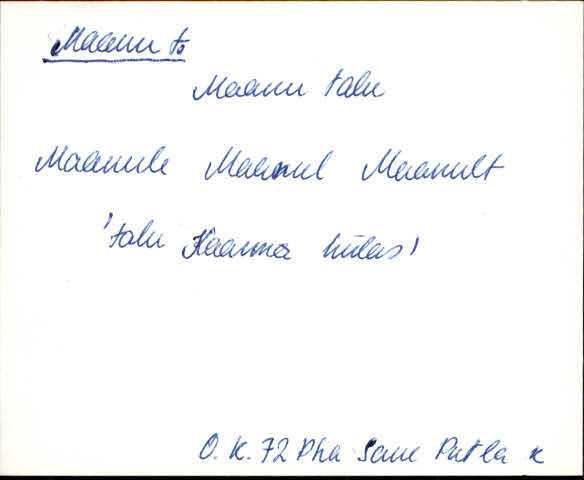 Maanu tə
Maanu talu
Maanule Maanul Maanult
'talu Haamse külas'
O. K. 72 Pha Saue Putla k